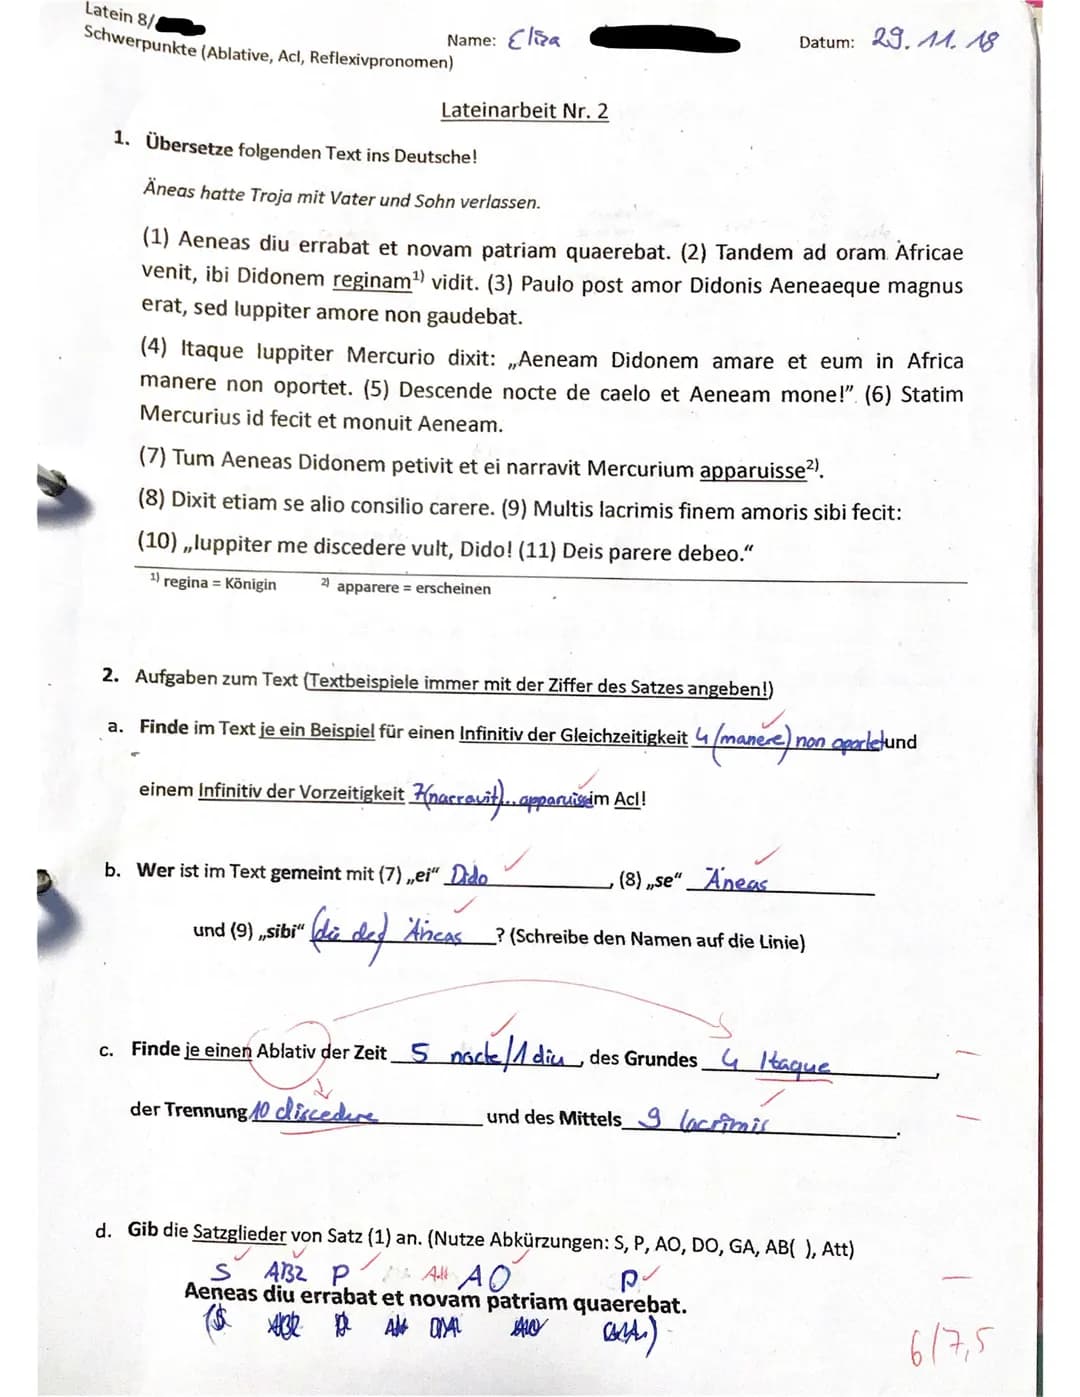 Latein 8/
Name: Eliza
Datum: 29.11.18
Schwerpunkte (Ablative, AcI, Reflexivpronomen)
Lateinarbeit Nr. 2
1. Übersetze folgenden Text ins Deutsche!
Äneas hatte Troja mit Vater und Sohn verlassen.
(1) Aeneas diu errabat et novam patriam quaerebat. (2) Tandem ad oram Africae
venit, ibi Didonem reginam¹⁾ vidit. (3) Paulo post amor Didonis Aeneaeque magnus
erat, sed Iuppiter amore non gaudebat.
(4) Itaque Iuppiter Mercurio dixit: „Aeneam Didonem amare et eum in Africa
manere non oportet. (5) Descende nocte de caelo et Aeneam mone!". (6) Statim
Mercurius id fecit et monuit Aeneam.
(7) Tum Aeneas Didonem petivit et ei narravit Mercurium apparuisse²⁾.
(8) Dixit etiam se alio consilio carere. (9) Multis lacrimis finem amoris sibi fecit:
(10) „Iuppiter me discedere vult, Dido! (11) Deis parere debeo.“
¹⁾ regina = Königin ²⁾ apparere = erscheinen
2. Aufgaben zum Text (Textbeispiele immer mit der Ziffer des Satzes angeben!)
a. Finde im Text je ein Beispiel für einen Infinitiv der Gleichzeitigkeit 4 (manere) non oportet und
einem Infinitiv der Vorzeitigkeit 7(narravit)... apparuisse im AcI!
b. Wer ist im Text gemeint mit (7) „ei“ Dido, (8) „se“ Äneas
und (9) „sibi“ Äneas ? (Schreibe den Namen auf die Linie)
c. Finde je einen Ablativ der Zeit 5 nocte/1 diu, des Grundes 4 Itaque,
der Trennung 10 discedere und des Mittels 9 lacrimis.
d. Gib die Satzglieder von Satz (1) an. (Nutze Abkürzungen: S, P, AO, DO, GA, AB( ), Att)
S ABZ P Att AO P
Aeneas diu errabat et novam patriam quaerebat.
6/7,5